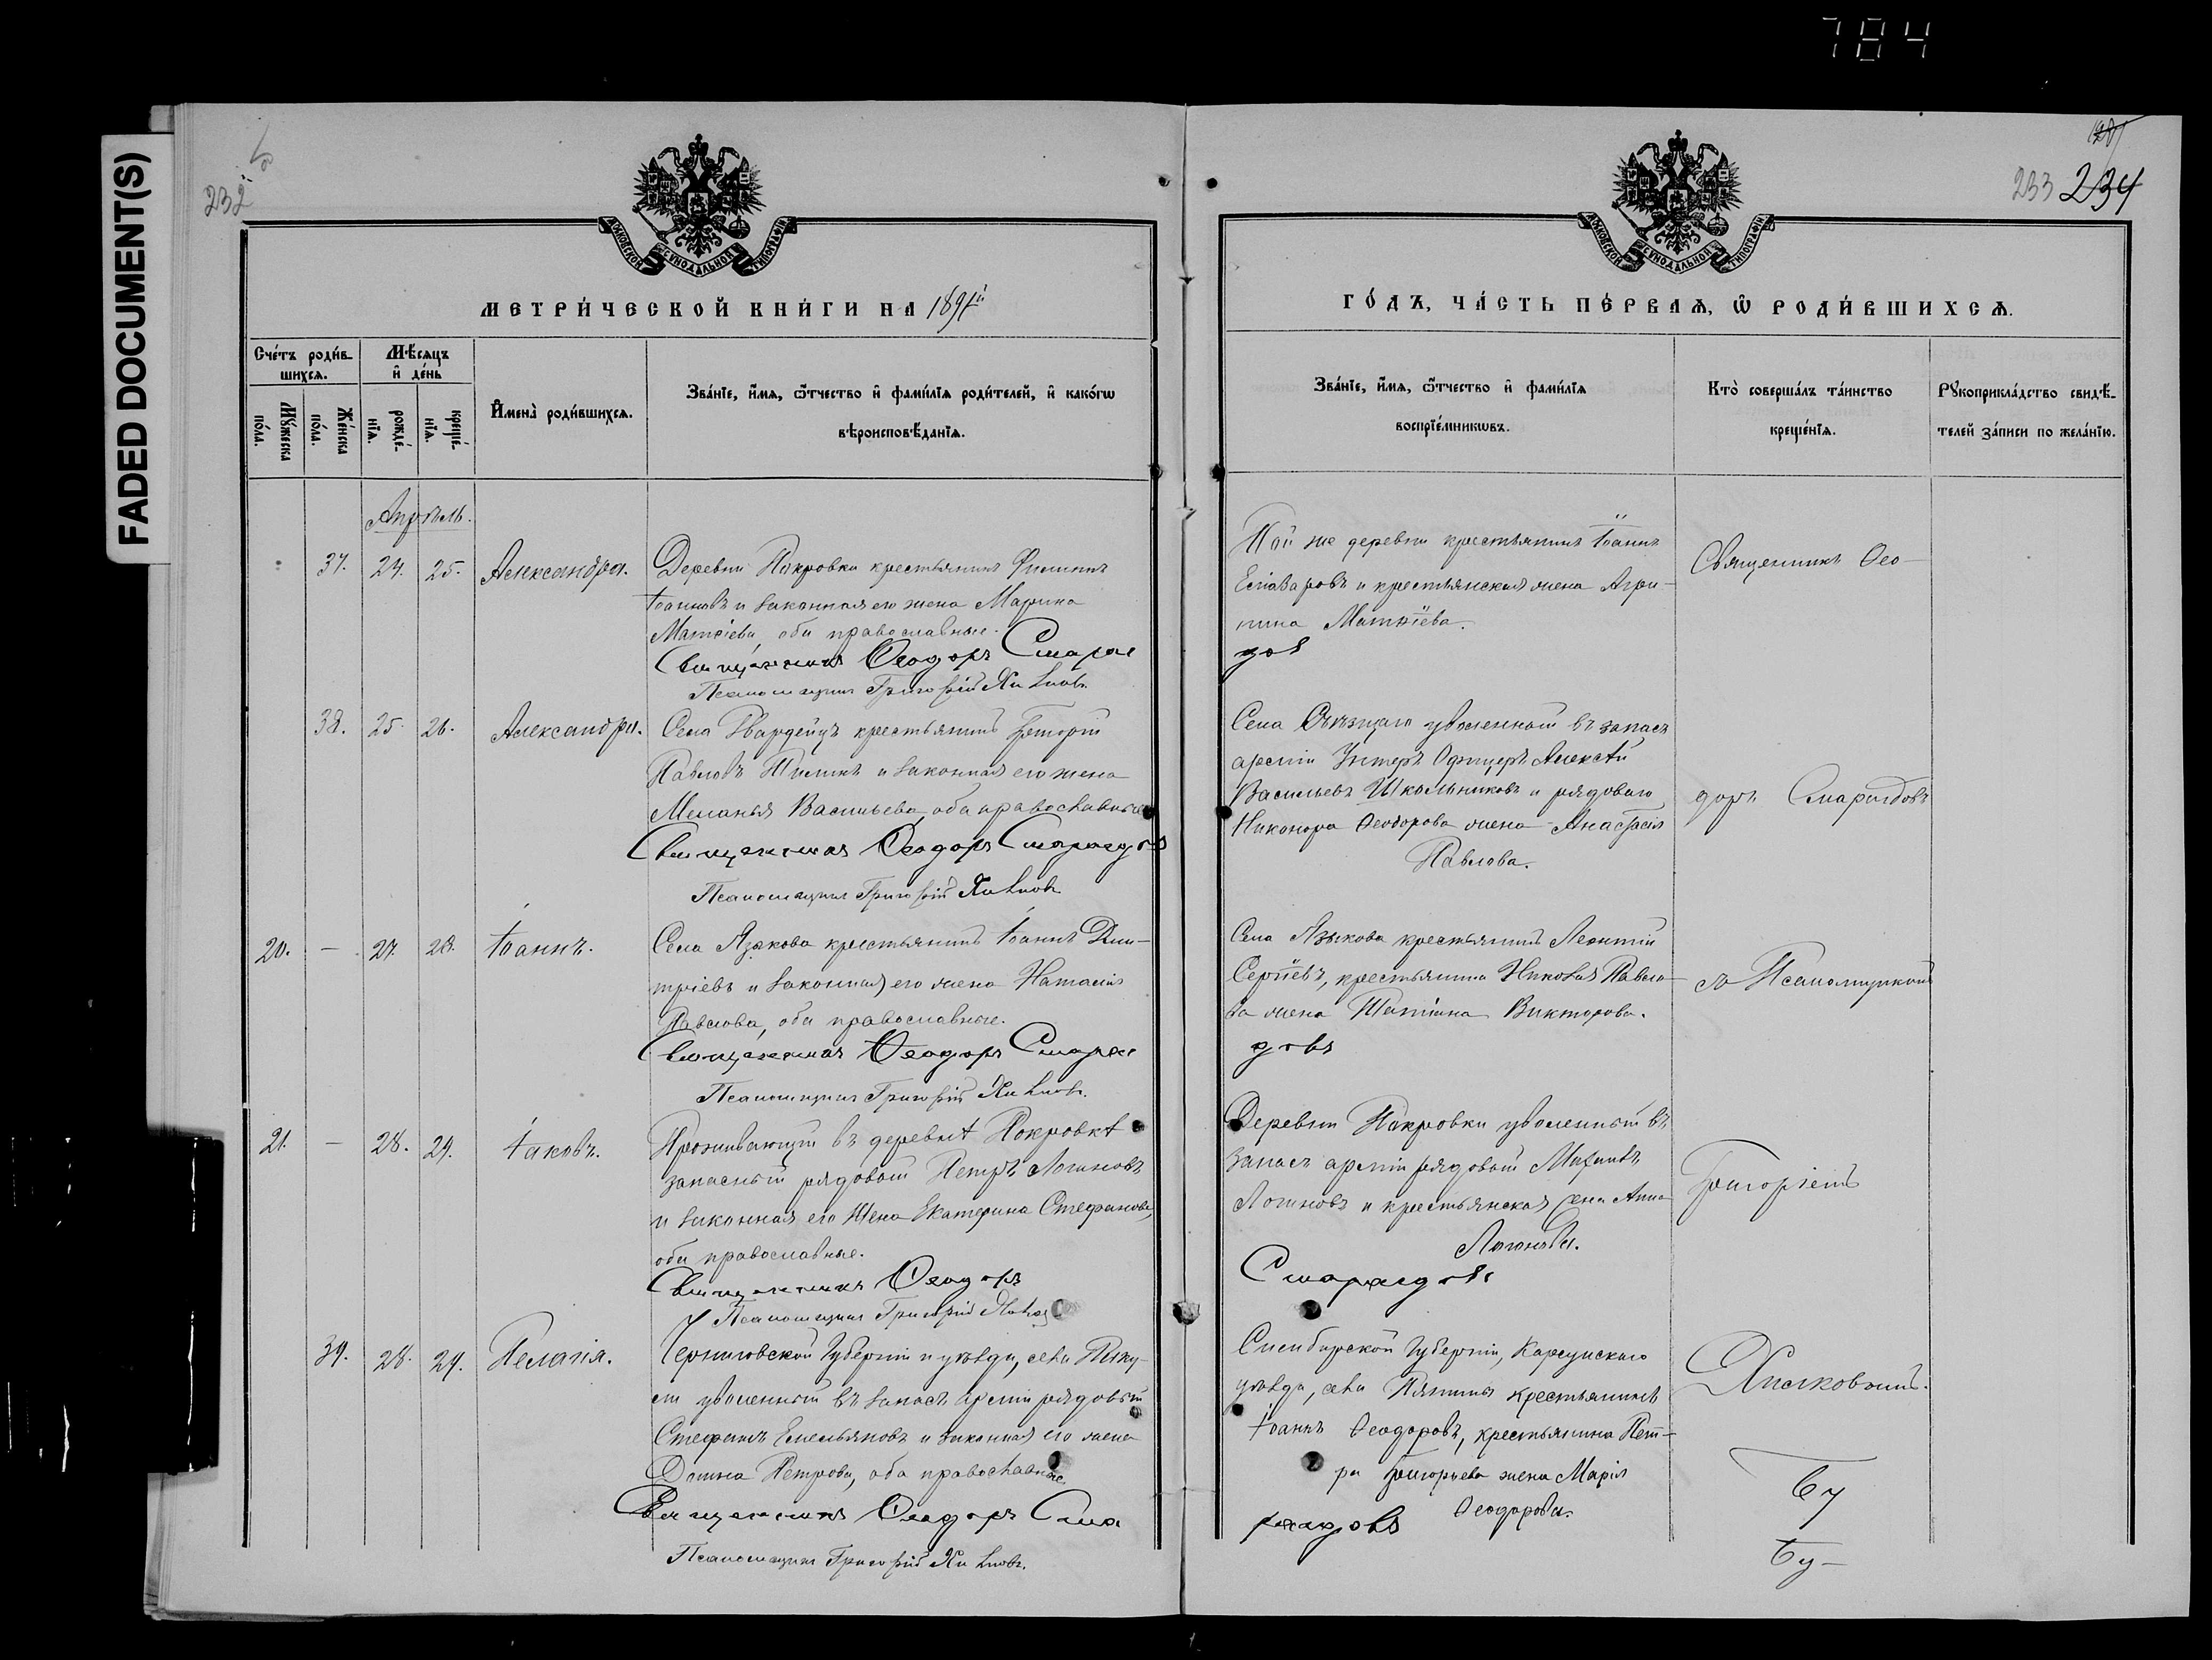 784
FADED DOCUMENT(S)
232
233 234
МОСКОВСКОЙ СѴНОДАЛЬНОЙ ТИПОГРАФІИ
МЕТРИ́ЧЕСКОЙ КНИ́ГИ НА 1891й
Сче́тъ роди́в-
шихся.
Мѣ́сяцъ
и де́нь
Му́жеска
по́ла.
Же́нска
по́ла.
рожде́-
нія.
креще́-
нія.
Имена̀ роди́вшихся.
Зва́ніе, и́мя, ѻ҆́тчество и фами́лія роди́телей, и како́гѡ
вѣроисповѣ́данія.
Апрѣль.
37. 24. 25. Александра.
Деревни Покровки крестьянинъ Филиппъ
Іоанновъ и законная его жена Марина
Матѳіева, оба православные.
Священникъ Ѳеодоръ Смараг
Псаломщикъ Григорій
38. 25. 26. Александра.
Села Гвардейцъ крестьянинъ Григорій
Павловъ и законная его жена
Меланья Васильева, оба православные
Священникъ Ѳеодоръ Смарагдовъ
Псаломщикъ Григорій
20. — 27. 28. Іоаннъ.
Села Языкова крестьянинъ Іоаннъ Дми-
тріевъ и законная его жена Наталія
Павлова, оба православные.
Священникъ Ѳеодоръ Смараг
Псаломщикъ Григорій
21. — 28. 29. Іаковъ.
Проживающій въ деревнѣ Покровкѣ
запасный рядовой Петръ Логиновъ
и законная его жена Екатерина Стефанова,
оба православные.
Священникъ Ѳеодоръ
Псаломщикъ Григорій
39. 28. 29. Пелагія.
Черниговской Губерніи и уѣзда, села
уволенный въ запасъ арміи рядовый
Стефанъ Емельяновъ и законная его жена
Домна Петрова, оба православные.
Священникъ Ѳеодоръ Сма
Псаломщикъ Григорій
МОСКОВСКОЙ СѴНОДАЛЬНОЙ ТИПОГРАФІИ
ГО́ДЪ, ЧА́СТЬ ПЕ́РВАЯ, Ѡ҆ РОДИ́ВШИХСЯ.
Зва́ніе, и́мя, ѻ҆́тчество и фами́лія
воспріе́мникѡвъ.
Кто̀ соверша́лъ та́инство
креще́нія.
Рꙋкоприкла́дство свидѣ́-
телей за́писи по жела́нію.
Той же деревни крестьянинъ Іоаннъ
и крестьянская жена Агри-
пина Матѳіева.
дов
Села уволенный въ запасъ
арміи Унтеръ Офицеръ Алексѣй
Васильевъ Школьниковъ и рядоваго
Никонора Ѳеодорова жена Анастасія
Павлова.
Села Языкова крестьянинъ Леонтій
Сергіевъ, крестьянина Николая Павло-
ва жена Татіана Викторова.
довъ
Деревни Покровки уволенный въ
запасъ арміи рядовый
Логиновъ и крестьянская жена Анна
Логинова.
Смарагдовъ
Симбирской Губерніи, Карсунскаго
уѣзда, села крестьянинъ
Іоаннъ Ѳеодоровъ, крестьянина Пет-
ра Григорьева жена Марія
Ѳеодорова.
рагдовъ
Священникъ Ѳео-
доръ Смарагдовъ
съ Псаломщикомъ
Григоріемъ